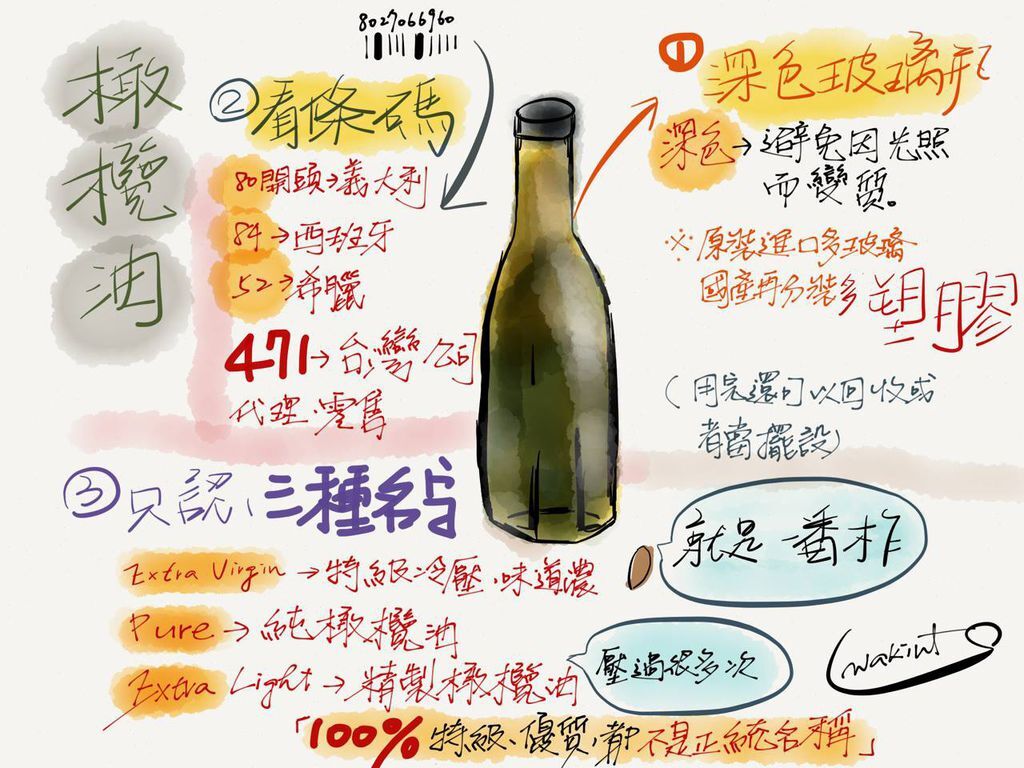 橄
欖
油
8027066960
① 深色玻璃瓶
深色→避免因光照
而變質。
※原裝進口多玻璃
國產再分裝多塑膠
(用完還可以回收或
者當擺設)
② 看條碼
80開頭→義大利
84→西班牙
52→希臘
471→台灣公司
代理、零售
③ 只認、三種名号
Extra Virgin→特級冷壓、味道濃
就是一番柞
Pure→純橄欖油
Extra Light→精製橄欖油
壓過很多次
「100%特級、優質,都不是正統名稱」
wakint